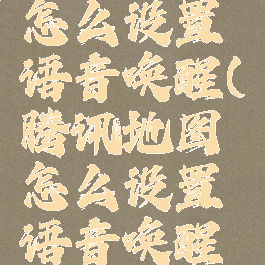 怎么设置
语音唤醒(
腾讯地图
怎么设置
语音唤醒